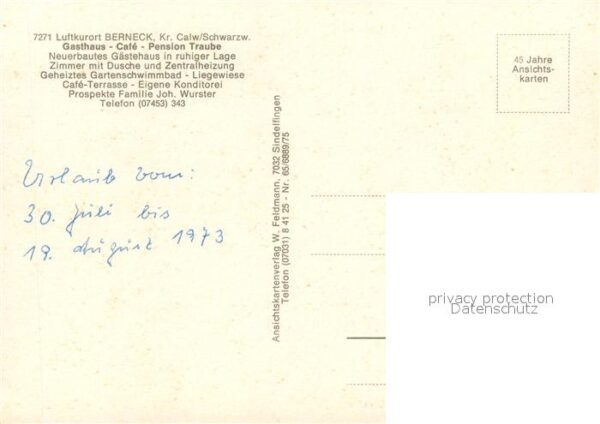 7271 Luftkurort BERNECK, Kr. Calw/Schwarzw.
Gasthaus - Café - Pension Traube
Neuerbautes Gästehaus in ruhiger Lage
Zimmer mit Dusche und Zentralheizung
Geheiztes Gartenschwimmbad - Liegewiese
Café-Terrasse - Eigene Konditorei
Prospekte Familie Joh. Wurster
Telefon (07453) 343
45 Jahre
Ansichts-
karten
Urlaub vom:
30. Juli bis
19. August 1973
Ansichtskartenverlag W. Feldmann, 7032 Sindelfingen
Telefon (07031) 8 41 25 - Nr. 65/6889/75
privacy protection
Datenschutz